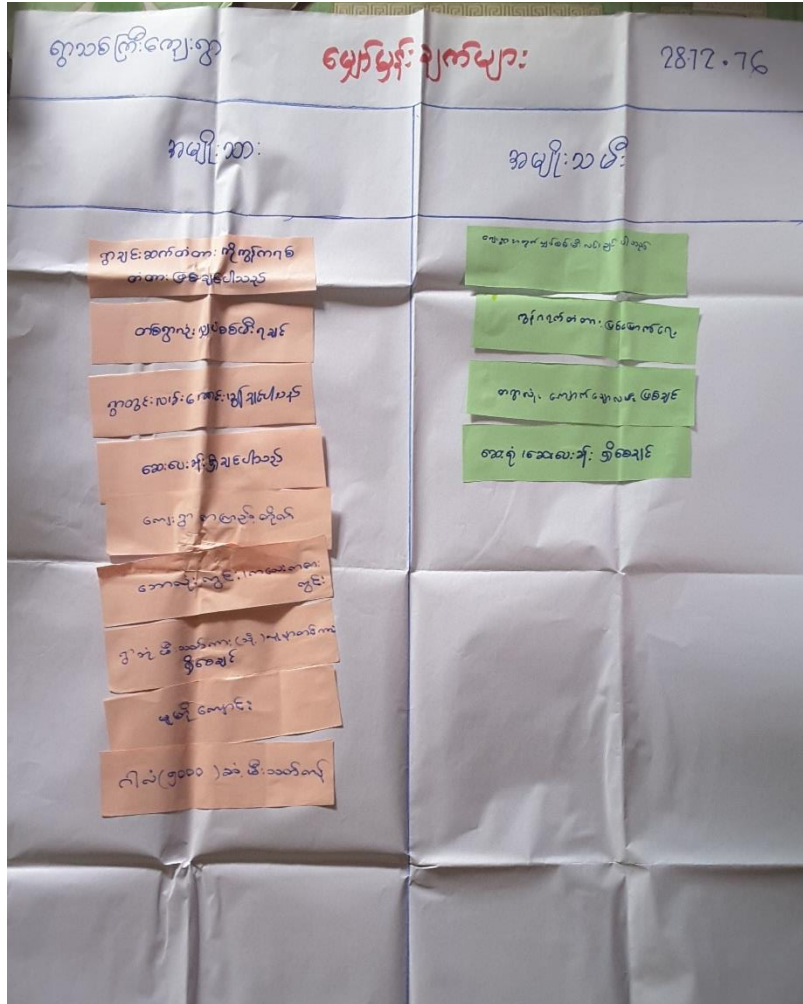 ရွာသစ်ကြီးကျေးရွာ
မျှော်မှန်းချက်များ
28.12.16
အမျိုးသား
အမျိုးသမီး
ရွာချင်းဆက်တံတား ကိုကွန်ကရစ်
တံတားဖြစ်ချင်ပါသည်
တစ်ရွာလုံး လျှပ်စစ်မီးရချင်
ရွာတွင်းလမ်းကောင်းမွန်ချင်ပါသည်
ဆေးပေးခန်းရှိချင်ပါသည်
ကျေးရွာ စာကြည့်တိုက်
ဘောလုံးကွင်း၊ ကစား
ကွင်း
မီးသတ်ကား (သို့)
ရှိစေချင်
မူကြိုကျောင်း
ဂါလံ(၅၀၀၀)ဆံ့ မီးသတ်ကန်
လျှပ်စစ်မီး လင်းချင်ပါသည်
ကွန်ကရစ်တံတား ဖြစ်မြောက်ရေး
တရွာလုံး ကျောက်ချောလမ်း ဖြစ်ချင်
ဆေးရုံ၊ ဆေးပေးခန်း ရှိစေချင်